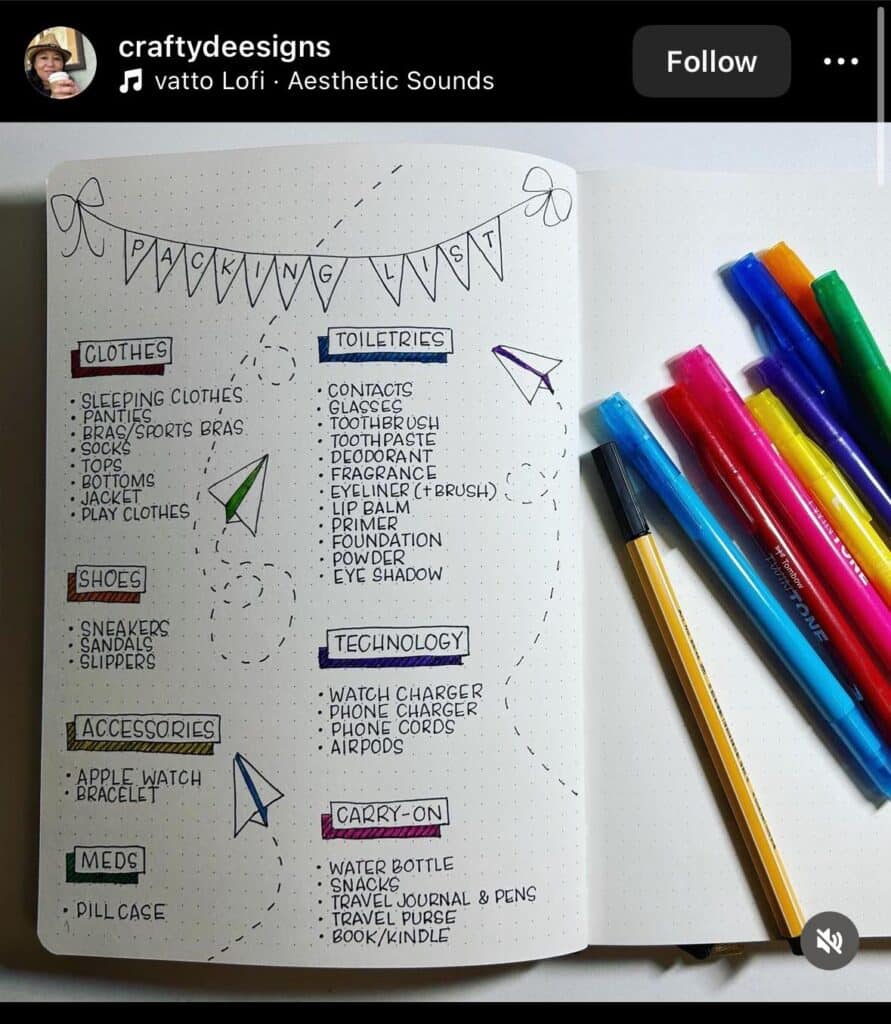 craftydeesigns
vatto Lofi · Aesthetic Sounds
Follow
PACKING LIST
CLOTHES
• SLEEPING CLOTHES
• PANTIES
• BRAS/SPORTS BRAS
• SOCKS
• TOPS
• BOTTOMS
• JACKET
• PLAY CLOTHES
SHOES
• SNEAKERS
• SANDALS
• SLIPPERS
ACCESSORIES
• APPLE WATCH
• BRACELET
MEDS
• PILL CASE
TOILETRIES
• CONTACTS
• GLASSES
• TOOTHBRUSH
• TOOTHPASTE
• DEODORANT
• FRAGRANCE
• EYELINER (+BRUSH)
• LIP BALM
• PRIMER
• FOUNDATION
• POWDER
• EYE SHADOW
TECHNOLOGY
• WATCH CHARGER
• PHONE CHARGER
• PHONE CORDS
• AIRPODS
CARRY-ON
• WATER BOTTLE
• SNACKS
• TRAVEL JOURNAL & PENS
• TRAVEL PURSE
• BOOK/KINDLE
Tombow
TwinTONE